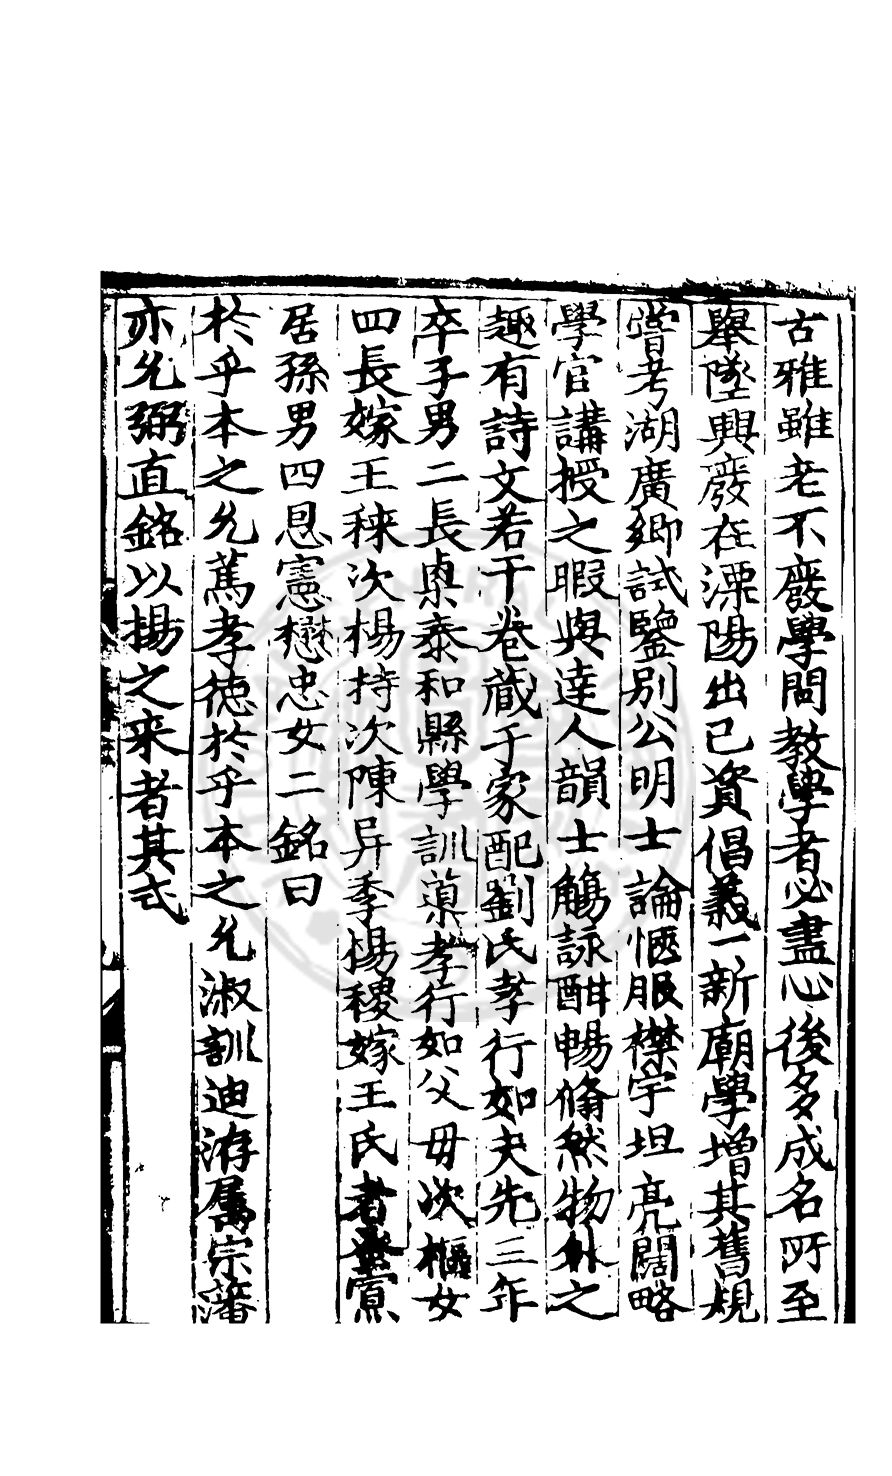 古雅雖老不廢學問教學者必盡心後多成名所至
舉墜興廢在溧陽出己資倡義一新廟學增其舊規
嘗考湖廣鄉試鑒別公明士論愜服襟宇坦亮闊略
學官講授之暇與達人韻士觴詠酣暢翛然物外之
趣有詩文若干卷蔵于家配劉氏孝行如夫先三年
卒子男二長槼泰和縣學訓導孝行如父毋次樞女
四長嫁王秼次楊持次陳异季楊稷嫁王氏者寡
居孫男四恩憲懋忠女二銘曰
於乎本之允萬孝徳於乎本之允淑訓迪洊属宗藩
亦允弼直銘以揚之来者其式